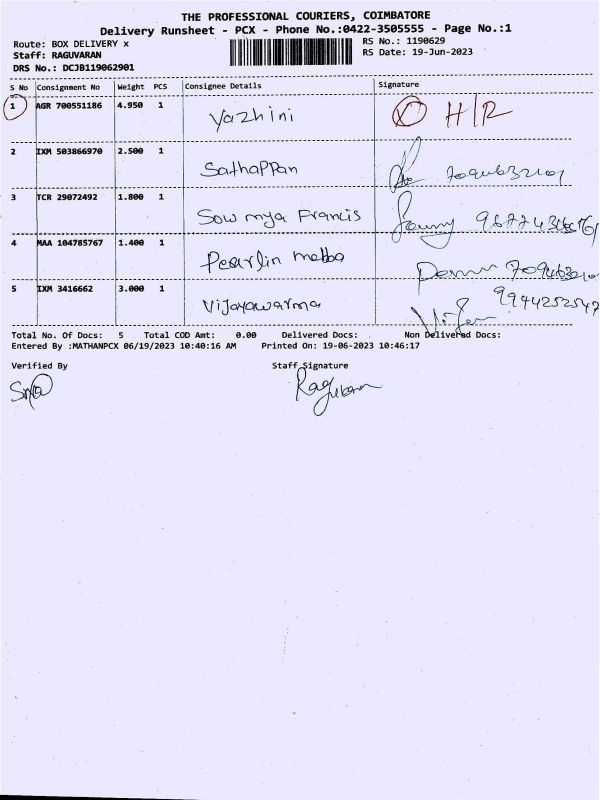 THE PROFESSIONAL COURIERS, COIMBATORE
Delivery Runsheet - PCX - Phone No.:0422-3505555 - Page No.:1
Route: BOX DELIVERY x
RS No.: 1190629
Staff: RAGUVARAN
RS Date: 19-Jun-2023
DRS No.: DCJB119062901
S No Consignment No Weight PCS Consignee Details Signature
1 AGR 700551186 4.950 1 Yazhini H/R
2 IXM 503866970 2.500 1 Sathappan
3 TCR 29072492 1.800 1 Sowmya Francis
4 MAA 104785767 1.400 1 Pearlin
5 IXM 3416662 3.000 1 Vijayawarma 9944252547
Total No. Of Docs: 5 Total COD Amt: 0.00 Delivered Docs: Non Delivered Docs:
Entered By :MATHANPCX 06/19/2023 10:40:16 AM Printed On: 19-06-2023 10:46:17
Verified By Staff Signature